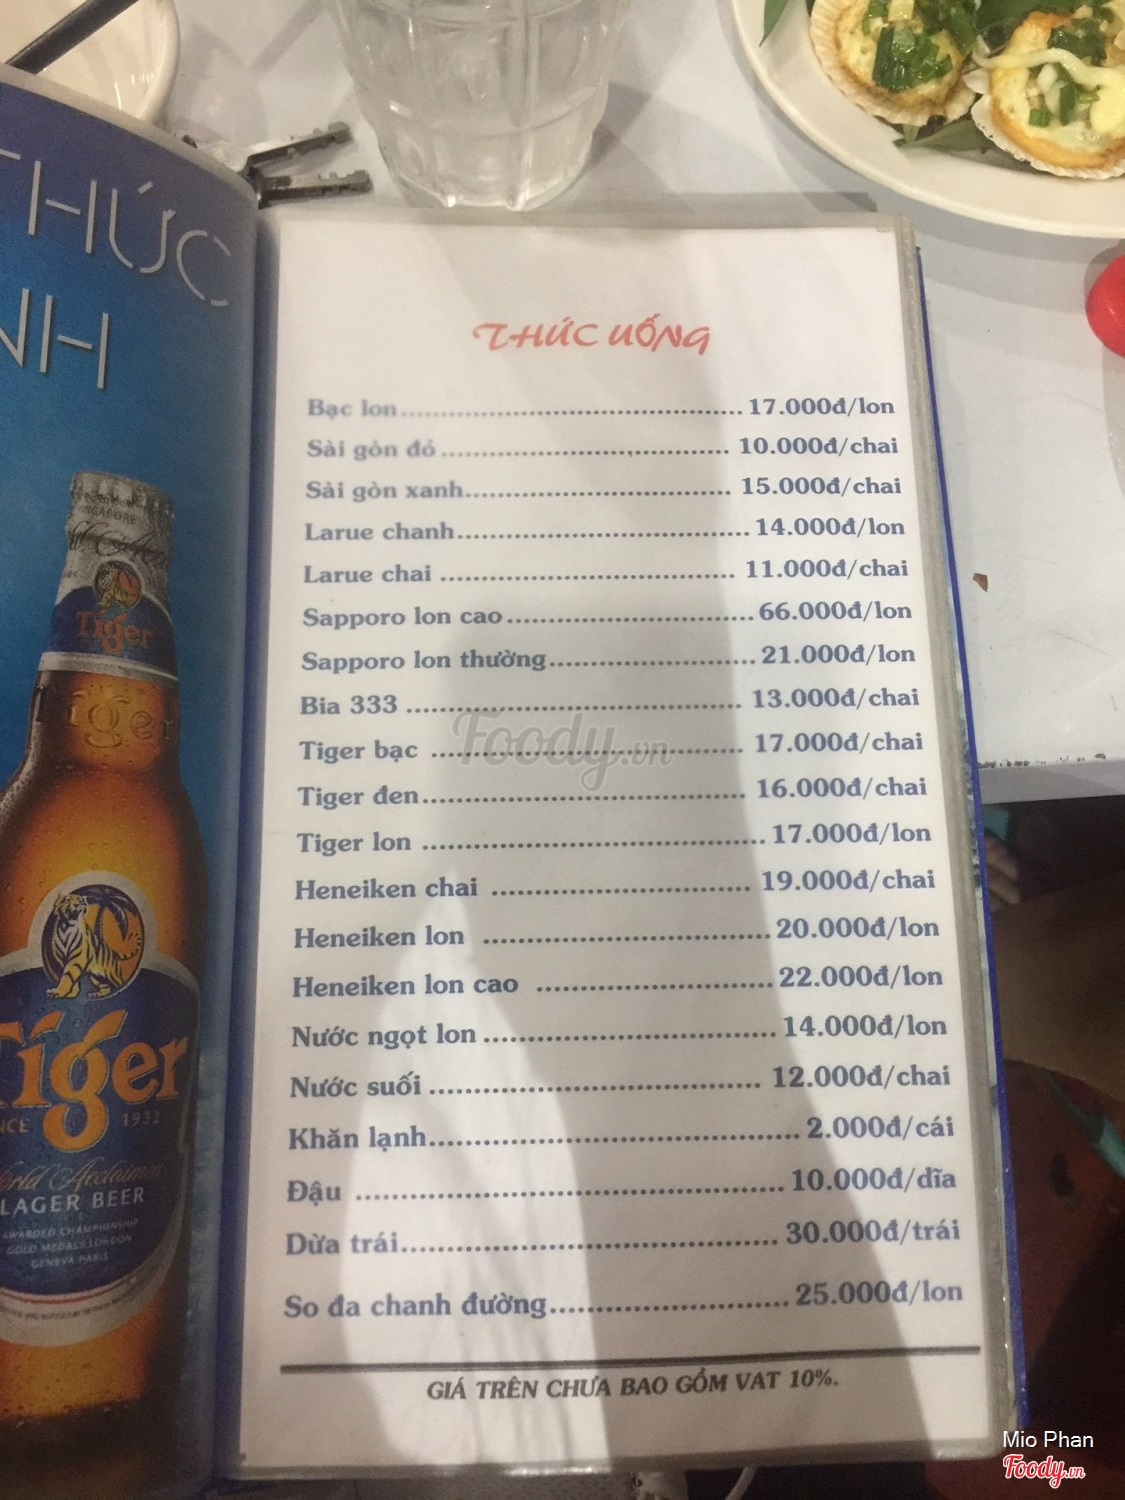 THỨC
NH
THỨC UỐNG
Bạc lon........................................17.000đ/lon
Sài gòn đỏ.................................. 10.000đ/chai
Sài gòn xanh............................... 15.000đ/chai
Larue chanh..................................14.000đ/lon
Larue chai ................................... 11.000đ/chai
Sapporo lon cao.............................66.000đ/lon
Sapporo lon thường........................21.000đ/lon
Bia 333 ....................................... 13.000đ/chai
Tiger bạc ..................................... 17.000đ/chai
Tiger đen...................................... 16.000đ/chai
Tiger lon ........................................17.000đ/lon
Heneiken chai .............................. 19.000đ/chai
Heneiken lon .................................20.000đ/lon
Heneiken lon cao ...........................22.000đ/lon
Nước ngọt lon ................................14.000đ/lon
Nước suối ..................................... 12.000đ/chai
Khăn lạnh.........................................2.000đ/cái
Đậu ................................................10.000đ/dĩa
Dừa trái..........................................30.000đ/trái
So đa chanh đường..........................25.000đ/lon
GIÁ TRÊN CHƯA BAO GỒM VAT 10%.
SINGAPORE
Tiger
Tiger
Tiger
1932
World Acclaimed
LAGER BEER
AWARDED CHAMPIONSHIP
GOLD MEDAL LONDON
GENEVA PARIS
Foody.vn
Mio Phan
Foody.vn